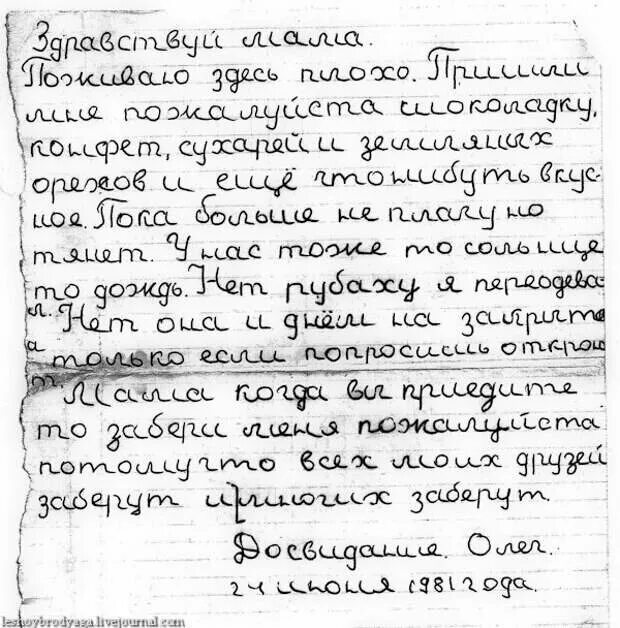 Здравствуй мама.
Поживаю здесь плохо. Пришли
мне пожалуйста шоколадку,
конфет, сухарей и земляных
орехов и ещё чтонибуть вкус-
ное. Пока больше не плачу но
тянет. У нас тоже то солнце
то дождь. Нет рубаху я переодева-
л. Нет она и днём на закрыта
а только если попросишь открою
т
Мама когда вы приедите
то забери меня пожалуйста
потомучто всех моих друзей
заберут и многих заберут.
Досвидание. Олег.
24 июня 1981 года.
lesnoybrodyaga.livejournal.com